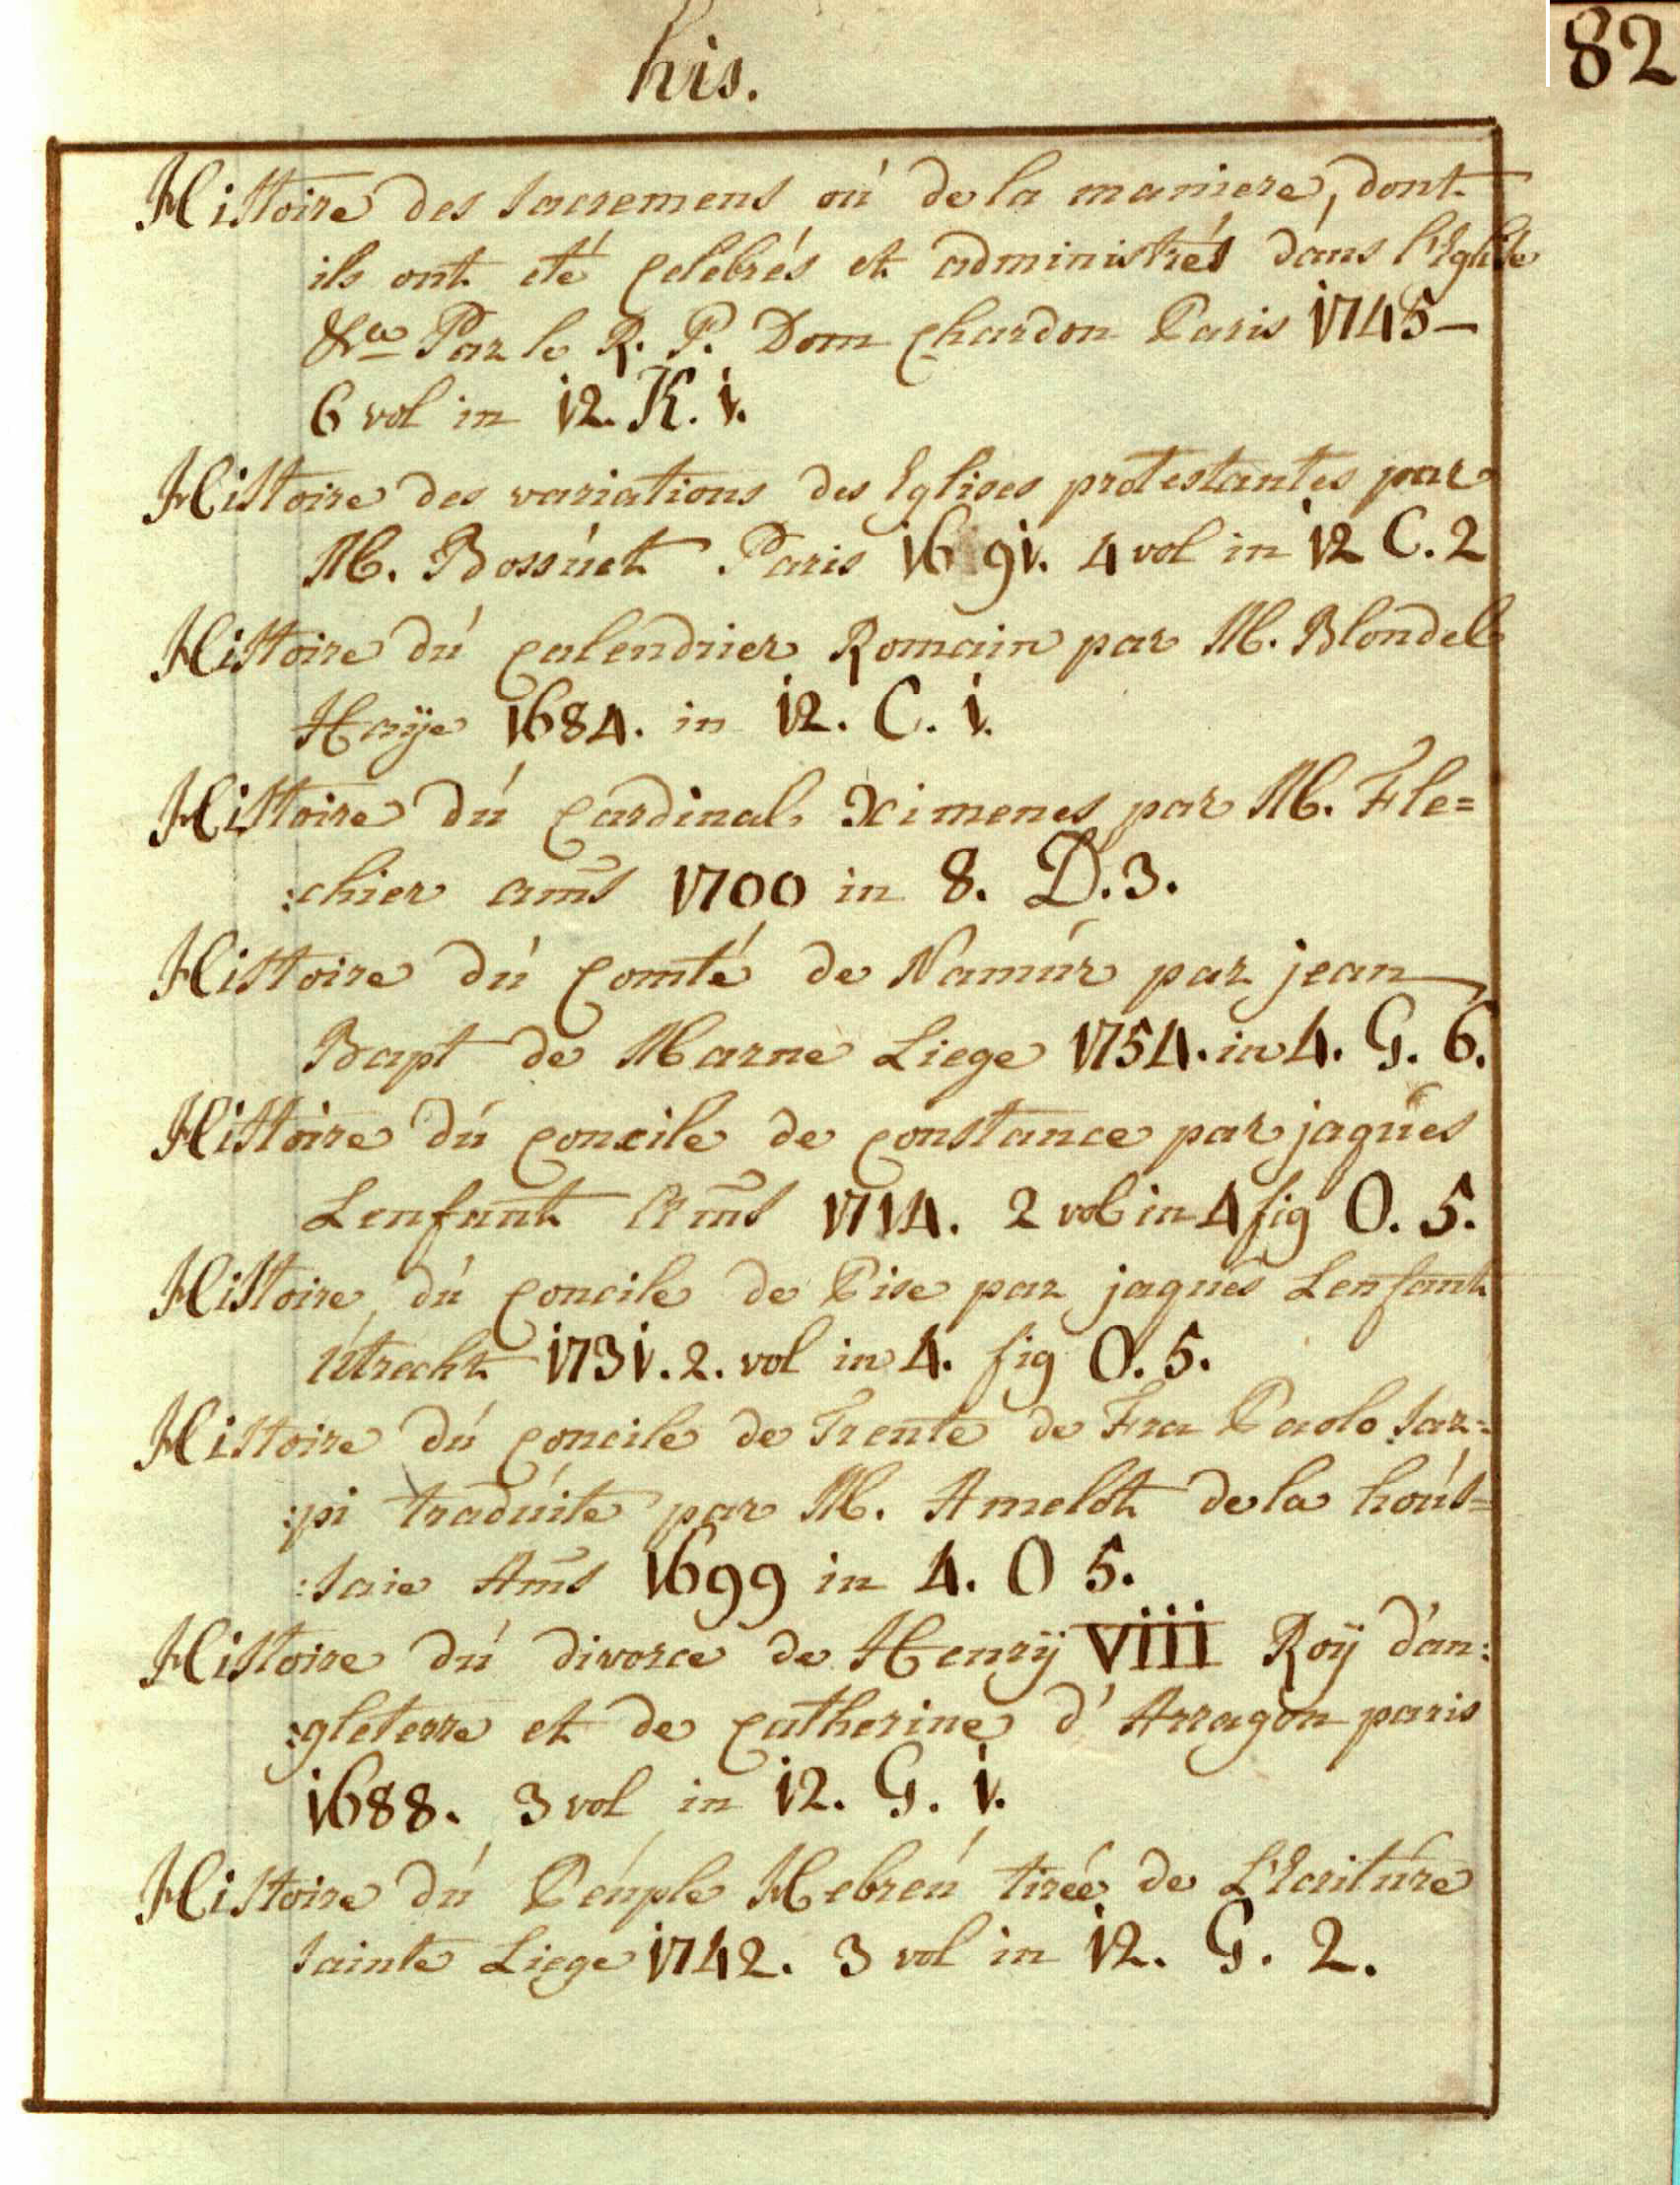 his.
82
Histoire des Sacremens oú de la maniere, dont
ils ont eté celebrés et administrés dans l'Eglise
&ca Par le R. P. Dom Chardon Paris 1745 –
6 vol in 12. K. 1.
Histoire des variations des Eglises protestantes par
M. Bossúet Paris 1691. 4 vol in 12 C. 2
Histoire dú calendrier Romain par M. Blondel
Haÿe 1684. in 12. C. 1.
Histoire dú Cardinal Ximenes par M. Fle=
:chier Ams 1700 in 8. D. 3.
Histoire dú Comté de Namúr par jean
Bapt de Marne Liege 1754. in 4. G. 6.
Histoire dú concile de constance par jaqúes
Lenfant Ams 1714. 2 vol in 4 fig O. 5.
Histoire dú concile de Pise par jaqúes Lenfant
Útrecht 1731. 2. vol in 4. fig O. 5.
Histoire dú concile de Trente de Fra Paolo Sar=
:pi tradúite par M. Amelot de la hoús=
:saie Ams 1699 in 4. O 5.
Histoire dú divorce de Henrÿ VIII Roÿ d'an:
:gleterre et de Catherine d'Arragon paris
1688. 3 vol in 12. G. 1.
Histoire dú Peúple Hebreú tirée de L'Ecritúre
Sainte Liege 1742. 3 vol in 12. G. 2.